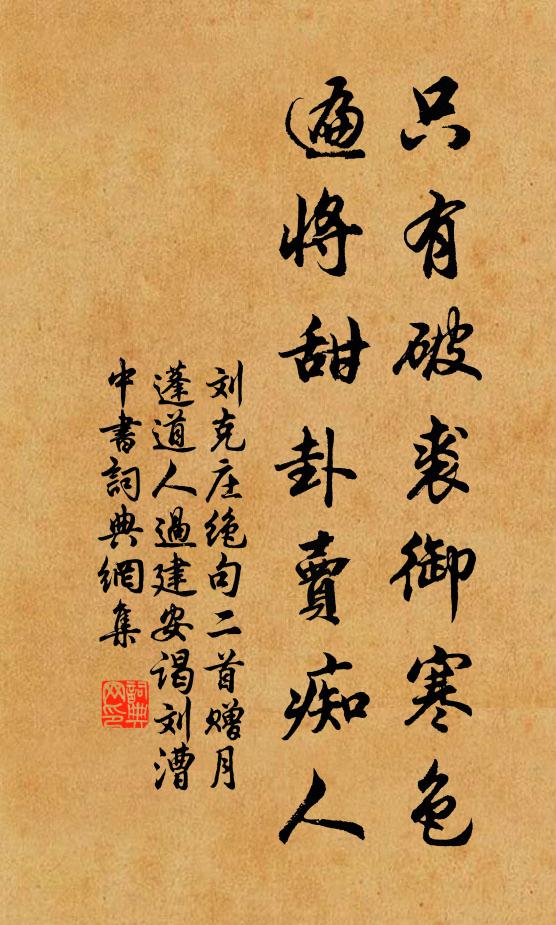 只有破裘御寒色
遍将甜卦賣痴人
刘克庄绝句二首赠月
蓬道人過建安谒刘漕
中書詞典網集
詞典
网印